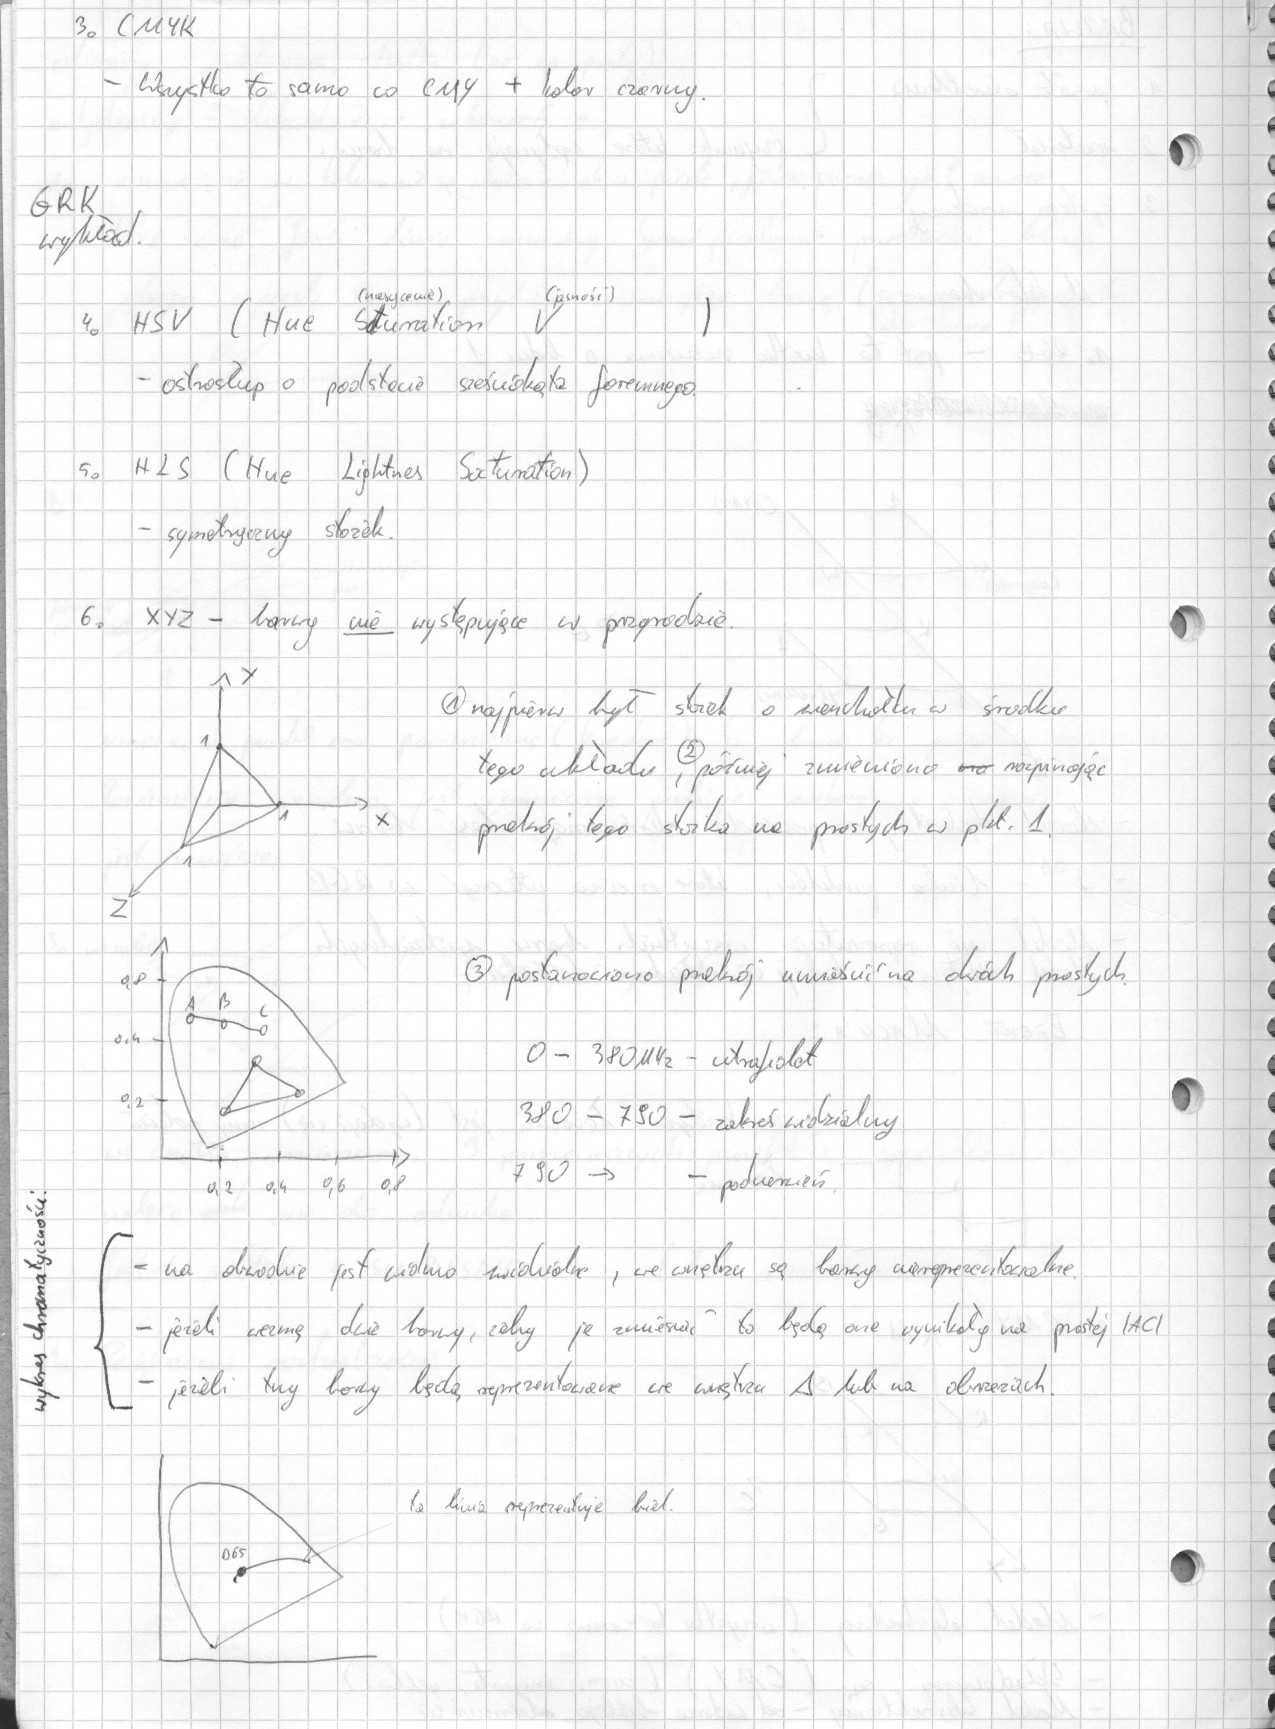 3. CMYK
- Wszystko to samo co CMY + kolor czarny.
GRK
wykład.
4. HSV ( Hue Saturation (nasycenie) V (jasność) )
- ostrosłup o podstawie sześciokąta foremnego.
5. HLS (Hue Lightnes Saturation)
- symetryczny stożek.
6. XYZ - barwy nie występujące w przyrodzie.
Y
1
1
X
1
Z
① najpierw był stożek o wierzchołku w środku
tego układu, ② później zmieniono rozpinając
przekrój tego stożka na prostych w pkt. 1.
③ postanowiono przekrój umieścić na dwóch prostych.
0,8
A B C
0,4
0,2
0,2 0,4 0,6 0,8
0 - 380 MHz - utrafiolet
380 - 790 - zakres widzialny
790 → - podczerwień.
wykres chromatyczności:
- na obwodzie jest widmo widzialne, we wnętrzu są barwy
- jeżeli wezmę dwie barwy, żeby je zmieszać to będą one wynikały na prostej |AC|
- jeżeli trzy barwy będą reprezentowane we wnętrzu Δ lub na obrzeżach.
D65
ta linia reprezentuje biel.